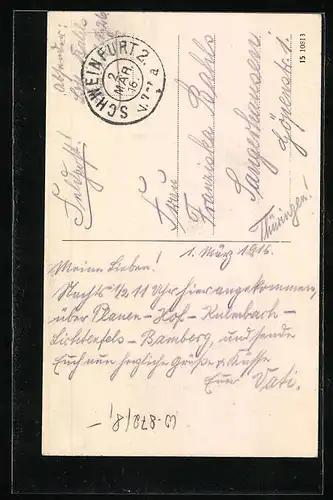 Absender:
SCHWEINFURT 2.
2
MÄR
16
V. 7-8 a
15 10813
Feldpost!
Frau
Franziska
Sangerhausen
Thüringen.
1. März 1916.
Meine Lieben!
Nachts 1/2 11 Uhr hier angekommen,
über Plauen - Hof - Kulmbach -
Lichtenfels - Bamberg, und sende
Euch nun herzliche Grüße & Küsse
Euer Vati.
W-872/8/